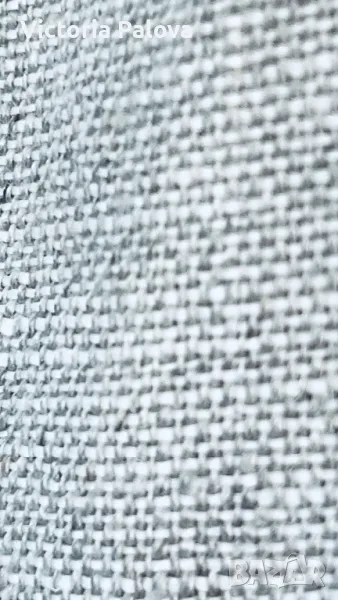 Victoria Palova
BAZAR